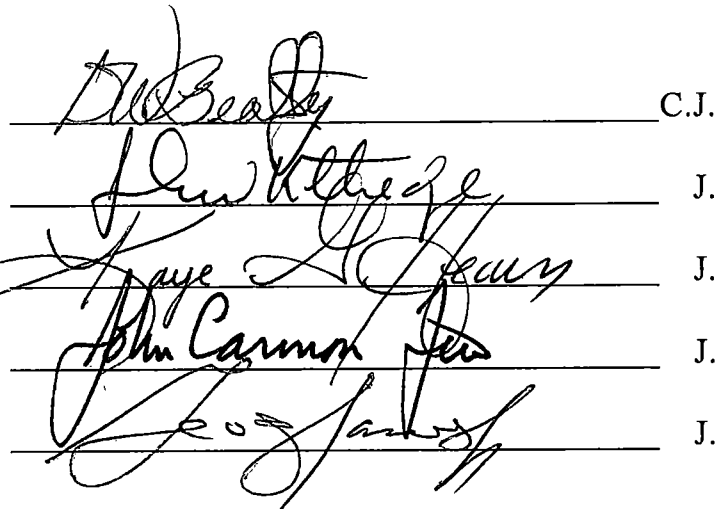 DWBeatty C.J.
John Kittredge J.
Kaye G Hearn J.
John Cannon Few J.
Geo J.